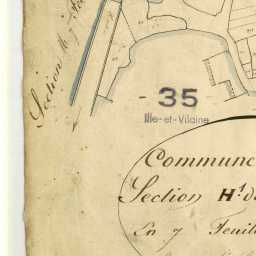 Section M
35
Ille-et-Vilaine
Commune
Section H.1 d
En 7 Feuil